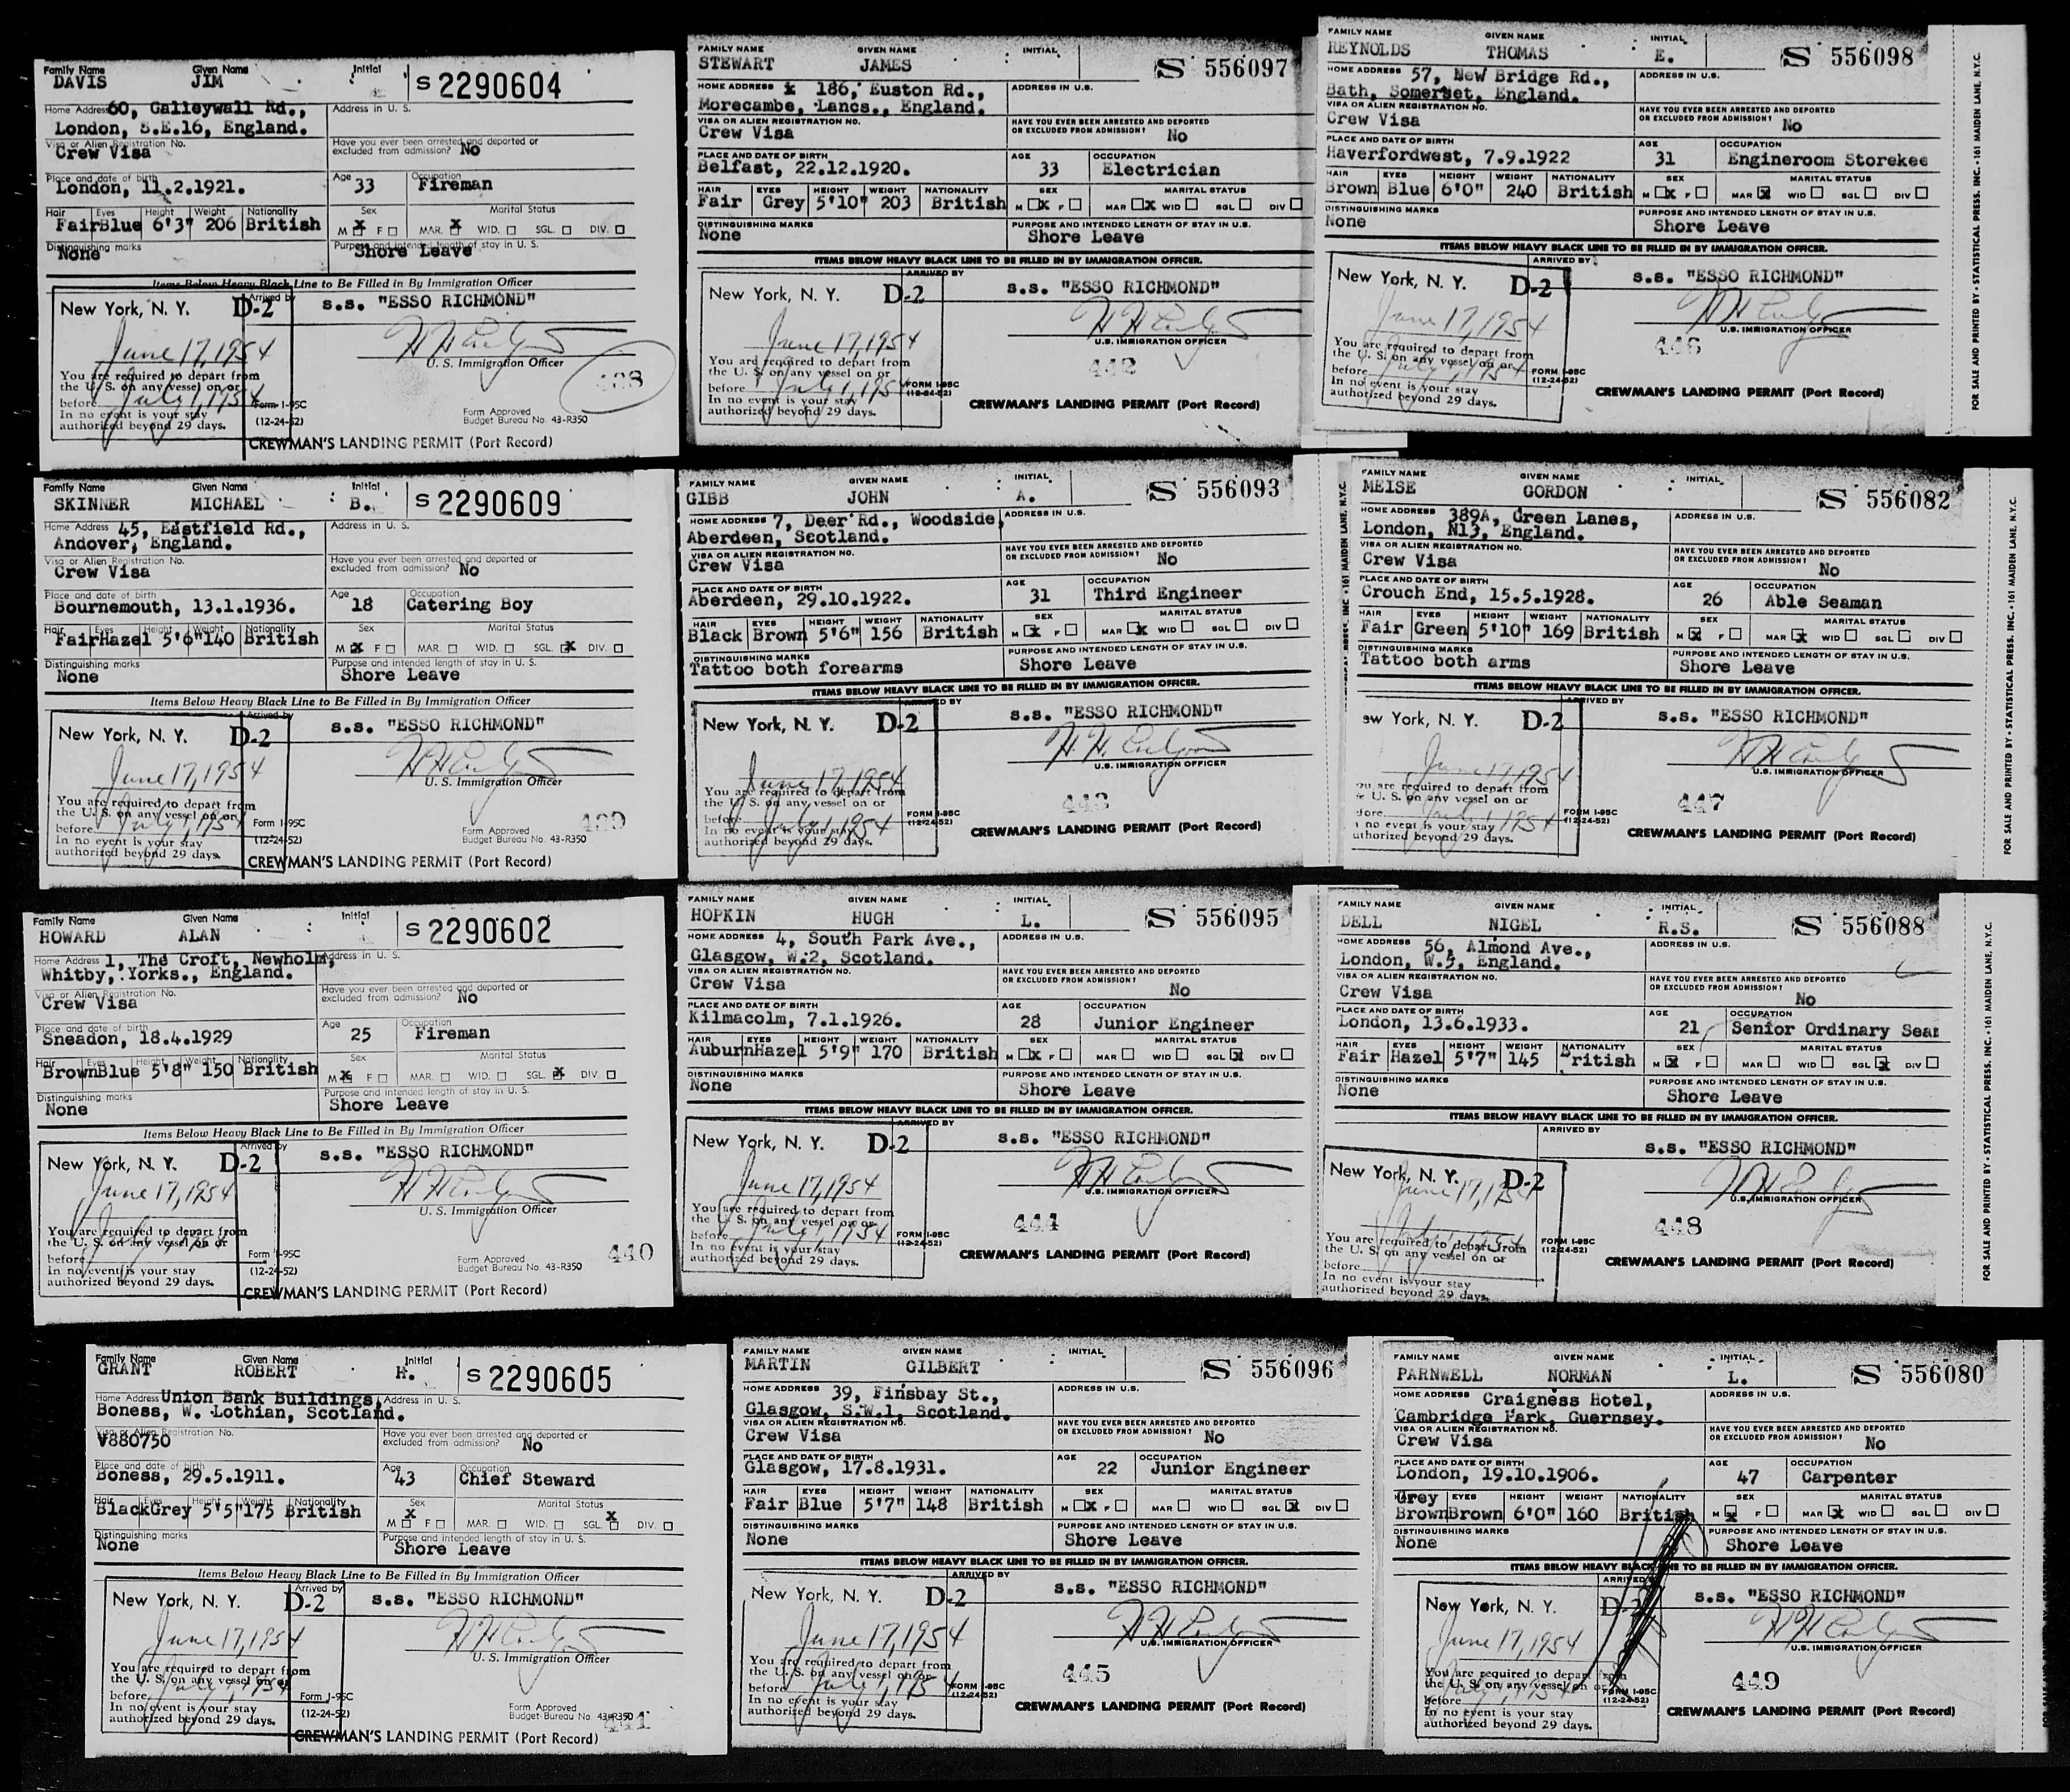 Family Name Given Name Initial
DAVIS JIM S 2290604
Home Address 60, Galleywall Rd., Address in U. S.
London, S.E.16, England.
Visa or Alien Registration No. Have you ever been arrested and deported or
Crew Visa excluded from admission? No
Place and date of birth Age Occupation
London, 11.2.1921. 33 Fireman
Hair Eyes Height Weight Nationality Sex Marital Status
Fair Blue 6'3" 206 British M X F MAR. X WID. SGL. DIV.
Distinguishing marks Purpose and intended length of stay in U. S.
None Shore Leave
Items Below Heavy Black Line to Be Filled in By Immigration Officer
Arrived by
New York, N. Y. D-2 s.s. "ESSO RICHMOND"
June 17, 1954
U. S. Immigration Officer
You are required to depart from
the U. S. on any vessel on or
before July 1, 1954 Form I-95C
In no event is your stay (12-24-52) Form Approved
authorized beyond 29 days. Budget Bureau No. 43-R350
CREWMAN'S LANDING PERMIT (Port Record)
FAMILY NAME GIVEN NAME INITIAL
STEWART JAMES S 556097
HOME ADDRESS 186, Euston Rd., ADDRESS IN U.S.
Morecambe, Lancs., England.
VISA OR ALIEN REGISTRATION NO. HAVE YOU EVER BEEN ARRESTED AND DEPORTED
Crew Visa OR EXCLUDED FROM ADMISSION? No
PLACE AND DATE OF BIRTH AGE OCCUPATION
Belfast, 22.12.1920. 33 Electrician
HAIR EYES HEIGHT WEIGHT NATIONALITY SEX MARITAL STATUS
Fair Grey 5'10" 203 British M X F MAR X WID SGL DIV
DISTINGUISHING MARKS PURPOSE AND INTENDED LENGTH OF STAY IN U.S.
None Shore Leave
ITEMS BELOW HEAVY BLACK LINE TO BE FILLED IN BY IMMIGRATION OFFICER.
ARRIVED BY
New York, N. Y. D-2 s.s. "ESSO RICHMOND"
June 17, 1954
U.S. IMMIGRATION OFFICER
You are required to depart from 442
the U. S. on any vessel on or
before July 1, 1954 FORM I-95C
In no event is your stay (12-24-52)
authorized beyond 29 days. CREWMAN'S LANDING PERMIT (Port Record)
FAMILY NAME GIVEN NAME INITIAL
REYNOLDS THOMAS E. S 556098
HOME ADDRESS 57, New Bridge Rd., ADDRESS IN U.S.
Bath, Somerset, England.
VISA OR ALIEN REGISTRATION NO. HAVE YOU EVER BEEN ARRESTED AND DEPORTED
Crew Visa OR EXCLUDED FROM ADMISSION? No
PLACE AND DATE OF BIRTH AGE OCCUPATION
Haverfordwest, 7.9.1922 31 Engineroom Storekee
HAIR EYES HEIGHT WEIGHT NATIONALITY SEX MARITAL STATUS
Brown Blue 6'0" 240 British M X F MAR X WID SGL DIV
DISTINGUISHING MARKS PURPOSE AND INTENDED LENGTH OF STAY IN U.S.
None Shore Leave
ITEMS BELOW HEAVY BLACK LINE TO BE FILLED IN BY IMMIGRATION OFFICER.
ARRIVED BY
New York, N. Y. D-2 s.s. "ESSO RICHMOND"
June 17, 1954
U.S. IMMIGRATION OFFICER
You are required to depart from 446
the U. S. on any vessel on or
before July 1, 1954 FORM I-95C
In no event is your stay (12-24-52)
authorized beyond 29 days. CREWMAN'S LANDING PERMIT (Port Record)
FOR SALE AND PRINTED BY • STATISTICAL PRESS. INC. • 161 MAIDEN LANE. N.Y.C.
Family Name Given Name Initial
SKINNER MICHAEL B. S 2290609
Home Address 45, Eastfield Rd., Address in U. S.
Andover, England.
Visa or Alien Registration No. Have you ever been arrested and deported or
Crew Visa excluded from admission? No
Place and date of birth Age Occupation
Bournemouth, 13.1.1936. 18 Catering Boy
Hair Eyes Height Weight Nationality Sex Marital Status
Fair Hazel 5'6" 140 British M X F MAR. WID. SGL. X DIV.
Distinguishing marks Purpose and intended length of stay in U. S.
None Shore Leave
Items Below Heavy Black Line to Be Filled in By Immigration Officer
Arrived by
New York, N. Y. D-2 s.s. "ESSO RICHMOND"
June 17, 1954
U. S. Immigration Officer
You are required to depart from
the U. S. on any vessel on or
before July 1, 1954 Form I-95C
In no event is your stay (12-24-52) Form Approved 439
authorized beyond 29 days. Budget Bureau No. 43-R350
CREWMAN'S LANDING PERMIT (Port Record)
FAMILY NAME GIVEN NAME INITIAL
GIBB JOHN A. S 556093
HOME ADDRESS 7, Deer Rd., Woodside, ADDRESS IN U.S.
Aberdeen, Scotland.
VISA OR ALIEN REGISTRATION NO. HAVE YOU EVER BEEN ARRESTED AND DEPORTED
Crew Visa OR EXCLUDED FROM ADMISSION? No
PLACE AND DATE OF BIRTH AGE OCCUPATION
Aberdeen, 29.10.1922. 31 Third Engineer
HAIR EYES HEIGHT WEIGHT NATIONALITY SEX MARITAL STATUS
Black Brown 5'6" 156 British M X F MAR X WID SGL DIV
DISTINGUISHING MARKS PURPOSE AND INTENDED LENGTH OF STAY IN U.S.
Tattoo both forearms Shore Leave
ITEMS BELOW HEAVY BLACK LINE TO BE FILLED IN BY IMMIGRATION OFFICER.
ARRIVED BY
New York, N. Y. D-2 s.s. "ESSO RICHMOND"
June 17, 1954
U.S. IMMIGRATION OFFICER
You are required to depart from 443
the U. S. on any vessel on or
before July 1, 1954 FORM I-95C
In no event is your stay (12-24-52)
authorized beyond 29 days. CREWMAN'S LANDING PERMIT (Port Record)
161 MAIDEN LANE. N.Y.C.
FAMILY NAME GIVEN NAME INITIAL
MEISE GORDON S 556082
HOME ADDRESS 389A, Green Lanes, ADDRESS IN U.S.
London, N13, England.
VISA OR ALIEN REGISTRATION NO. HAVE YOU EVER BEEN ARRESTED AND DEPORTED
Crew Visa OR EXCLUDED FROM ADMISSION? No
PLACE AND DATE OF BIRTH AGE OCCUPATION
Crouch End, 15.5.1928. 26 Able Seaman
HAIR EYES HEIGHT WEIGHT NATIONALITY SEX MARITAL STATUS
Fair Green 5'10" 169 British M X F MAR X WID SGL DIV
DISTINGUISHING MARKS PURPOSE AND INTENDED LENGTH OF STAY IN U.S.
Tattoo both arms Shore Leave
ITEMS BELOW HEAVY BLACK LINE TO BE FILLED IN BY IMMIGRATION OFFICER.
ARRIVED BY
ew York, N. Y. D-2 s.s. "ESSO RICHMOND"
June 17, 1954
U.S. IMMIGRATION OFFICER
ou are required to depart from 447
U. S. on any vessel on or
fore July 1, 1954 FORM I-95C
no event is your stay (12-24-52)
uthorized beyond 29 days. CREWMAN'S LANDING PERMIT (Port Record)
FOR SALE AND PRINTED BY • STATISTICAL PRESS. INC. • 161 MAIDEN LANE. N.Y.C.
Family Name Given Name Initial
HOWARD ALAN S 2290602
Home Address 1, The Croft, Newholm, Address in U. S.
Whitby, Yorks., England.
Visa or Alien Registration No. Have you ever been arrested and deported or
Crew Visa excluded from admission? No
Place and date of birth Age Occupation
Sneadon, 18.4.1929 25 Fireman
Hair Eyes Height Weight Nationality Sex Marital Status
Brown Blue 5'8" 150 British M X F MAR. WID. SGL. X DIV.
Distinguishing marks Purpose and intended length of stay in U. S.
None Shore Leave
Items Below Heavy Black Line to Be Filled in By Immigration Officer
Arrived by
New York, N. Y. D-2 s.s. "ESSO RICHMOND"
June 17, 1954
U. S. Immigration Officer
You are required to depart from
the U. S. on any vessel on or
before July 1, 1954 Form I-95C
In no event is your stay (12-24-52) Form Approved 440
authorized beyond 29 days. Budget Bureau No. 43-R350
CREWMAN'S LANDING PERMIT (Port Record)
FAMILY NAME GIVEN NAME INITIAL
HOPKIN HUGH L. S 556095
HOME ADDRESS 4, South Park Ave., ADDRESS IN U.S.
Glasgow, W.2, Scotland.
VISA OR ALIEN REGISTRATION NO. HAVE YOU EVER BEEN ARRESTED AND DEPORTED
Crew Visa OR EXCLUDED FROM ADMISSION? No
PLACE AND DATE OF BIRTH AGE OCCUPATION
Kilmacolm, 7.1.1926. 28 Junior Engineer
HAIR EYES HEIGHT WEIGHT NATIONALITY SEX MARITAL STATUS
Auburn Hazel 5'9" 170 British M X F MAR WID SGL X DIV
DISTINGUISHING MARKS PURPOSE AND INTENDED LENGTH OF STAY IN U.S.
None Shore Leave
ITEMS BELOW HEAVY BLACK LINE TO BE FILLED IN BY IMMIGRATION OFFICER.
ARRIVED BY
New York, N. Y. D-2 s.s. "ESSO RICHMOND"
June 17, 1954
U.S. IMMIGRATION OFFICER
You are required to depart from 444
the U. S. on any vessel on or
before July 1, 1954 FORM I-95C
In no event is your stay (12-24-52)
authorized beyond 29 days. CREWMAN'S LANDING PERMIT (Port Record)
FAMILY NAME GIVEN NAME INITIAL
DELL NIGEL R.S. S 556088
HOME ADDRESS 56, Almond Ave., ADDRESS IN U.S.
London, W.5, England.
VISA OR ALIEN REGISTRATION NO. HAVE YOU EVER BEEN ARRESTED AND DEPORTED
Crew Visa OR EXCLUDED FROM ADMISSION? No
PLACE AND DATE OF BIRTH AGE OCCUPATION
London, 13.6.1933. 21 Senior Ordinary Sea
HAIR EYES HEIGHT WEIGHT NATIONALITY SEX MARITAL STATUS
Fair Hazel 5'7" 145 British M X F MAR WID SGL X DIV
DISTINGUISHING MARKS PURPOSE AND INTENDED LENGTH OF STAY IN U.S.
None Shore Leave
ITEMS BELOW HEAVY BLACK LINE TO BE FILLED IN BY IMMIGRATION OFFICER.
ARRIVED BY
s.s. "ESSO RICHMOND"
New York, N. Y. D-2
June 17, 1954
U.S. IMMIGRATION OFFICER
July 1, 1954 448
You are required to depart from FORM I-95C
the U. S. on any vessel on or (12-24-52)
before CREWMAN'S LANDING PERMIT (Port Record)
In no event is your stay
authorized beyond 29 days.
FOR SALE AND PRINTED BY • STATISTICAL PRESS. INC. • 161 MAIDEN LANE. N.Y.C.
Family Name Given Name Initial
GRANT ROBERT H. S 2290605
Home Address Union Bank Buildings, Address in U. S.
Boness, W. Lothian, Scotland.
Visa or Alien Registration No. Have you ever been arrested and deported or
V880750 excluded from admission? No
Place and date of birth Age Occupation
Boness, 29.5.1911. 43 Chief Steward
Hair Eyes Height Weight Nationality Sex Marital Status
Black Grey 5'5" 175 British M X F MAR. WID. SGL. X DIV.
Distinguishing marks Purpose and intended length of stay in U. S.
None Shore Leave
Items Below Heavy Black Line to Be Filled in By Immigration Officer
Arrived by
New York, N. Y. D-2 s.s. "ESSO RICHMOND"
June 17, 1954
U. S. Immigration Officer
You are required to depart from
the U. S. on any vessel on or
before July 1, 1954 Form I-95C
In no event is your stay (12-24-52) Form Approved
authorized beyond 29 days. Budget Bureau No. 43-R350 441
CREWMAN'S LANDING PERMIT (Port Record)
FAMILY NAME GIVEN NAME INITIAL
MARTIN GILBERT S 556096
HOME ADDRESS 39, Finsbay St., ADDRESS IN U.S.
Glasgow, S.W.1, Scotland.
VISA OR ALIEN REGISTRATION NO. HAVE YOU EVER BEEN ARRESTED AND DEPORTED
Crew Visa OR EXCLUDED FROM ADMISSION? No
PLACE AND DATE OF BIRTH AGE OCCUPATION
Glasgow, 17.8.1931. 22 Junior Engineer
HAIR EYES HEIGHT WEIGHT NATIONALITY SEX MARITAL STATUS
Fair Blue 5'7" 148 British M X F MAR WID SGL X DIV
DISTINGUISHING MARKS PURPOSE AND INTENDED LENGTH OF STAY IN U.S.
None Shore Leave
ITEMS BELOW HEAVY BLACK LINE TO BE FILLED IN BY IMMIGRATION OFFICER.
ARRIVED BY
New York, N. Y. D-2 s.s. "ESSO RICHMOND"
June 17, 1954
U.S. IMMIGRATION OFFICER
You are required to depart from 445
the U. S. on any vessel on or
before July 1, 1954 FORM I-95C
In no event is your stay (12-24-52)
authorized beyond 29 days. CREWMAN'S LANDING PERMIT (Port Record)
FAMILY NAME GIVEN NAME INITIAL
PARNWELL NORMAN L. S 556080
HOME ADDRESS Craigness Hotel, ADDRESS IN U.S.
Cambridge Park, Guernsey.
VISA OR ALIEN REGISTRATION NO. HAVE YOU EVER BEEN ARRESTED AND DEPORTED
Crew Visa OR EXCLUDED FROM ADMISSION? No
PLACE AND DATE OF BIRTH AGE OCCUPATION
London, 19.10.1906. 47 Carpenter
Grey EYES HEIGHT WEIGHT NATIONALITY SEX MARITAL STATUS
Brown Brown 6'0" 160 British M X F MAR X WID SGL DIV
DISTINGUISHING MARKS PURPOSE AND INTENDED LENGTH OF STAY IN U.S.
None Shore Leave
ITEMS BELOW HEAVY BLACK LINE TO BE FILLED IN BY IMMIGRATION OFFICER.
ARRIVED
New York, N. Y. D-2 s.s. "ESSO RICHMOND"
June 17, 1954
U.S. IMMIGRATION OFFICER
You are required to depart from 449
the U. S. on any vessel on or
before July 1, 1954 FORM I-95C
In no event is your stay (12-24-52)
authorized beyond 29 days. CREWMAN'S LANDING PERMIT (Port Record)